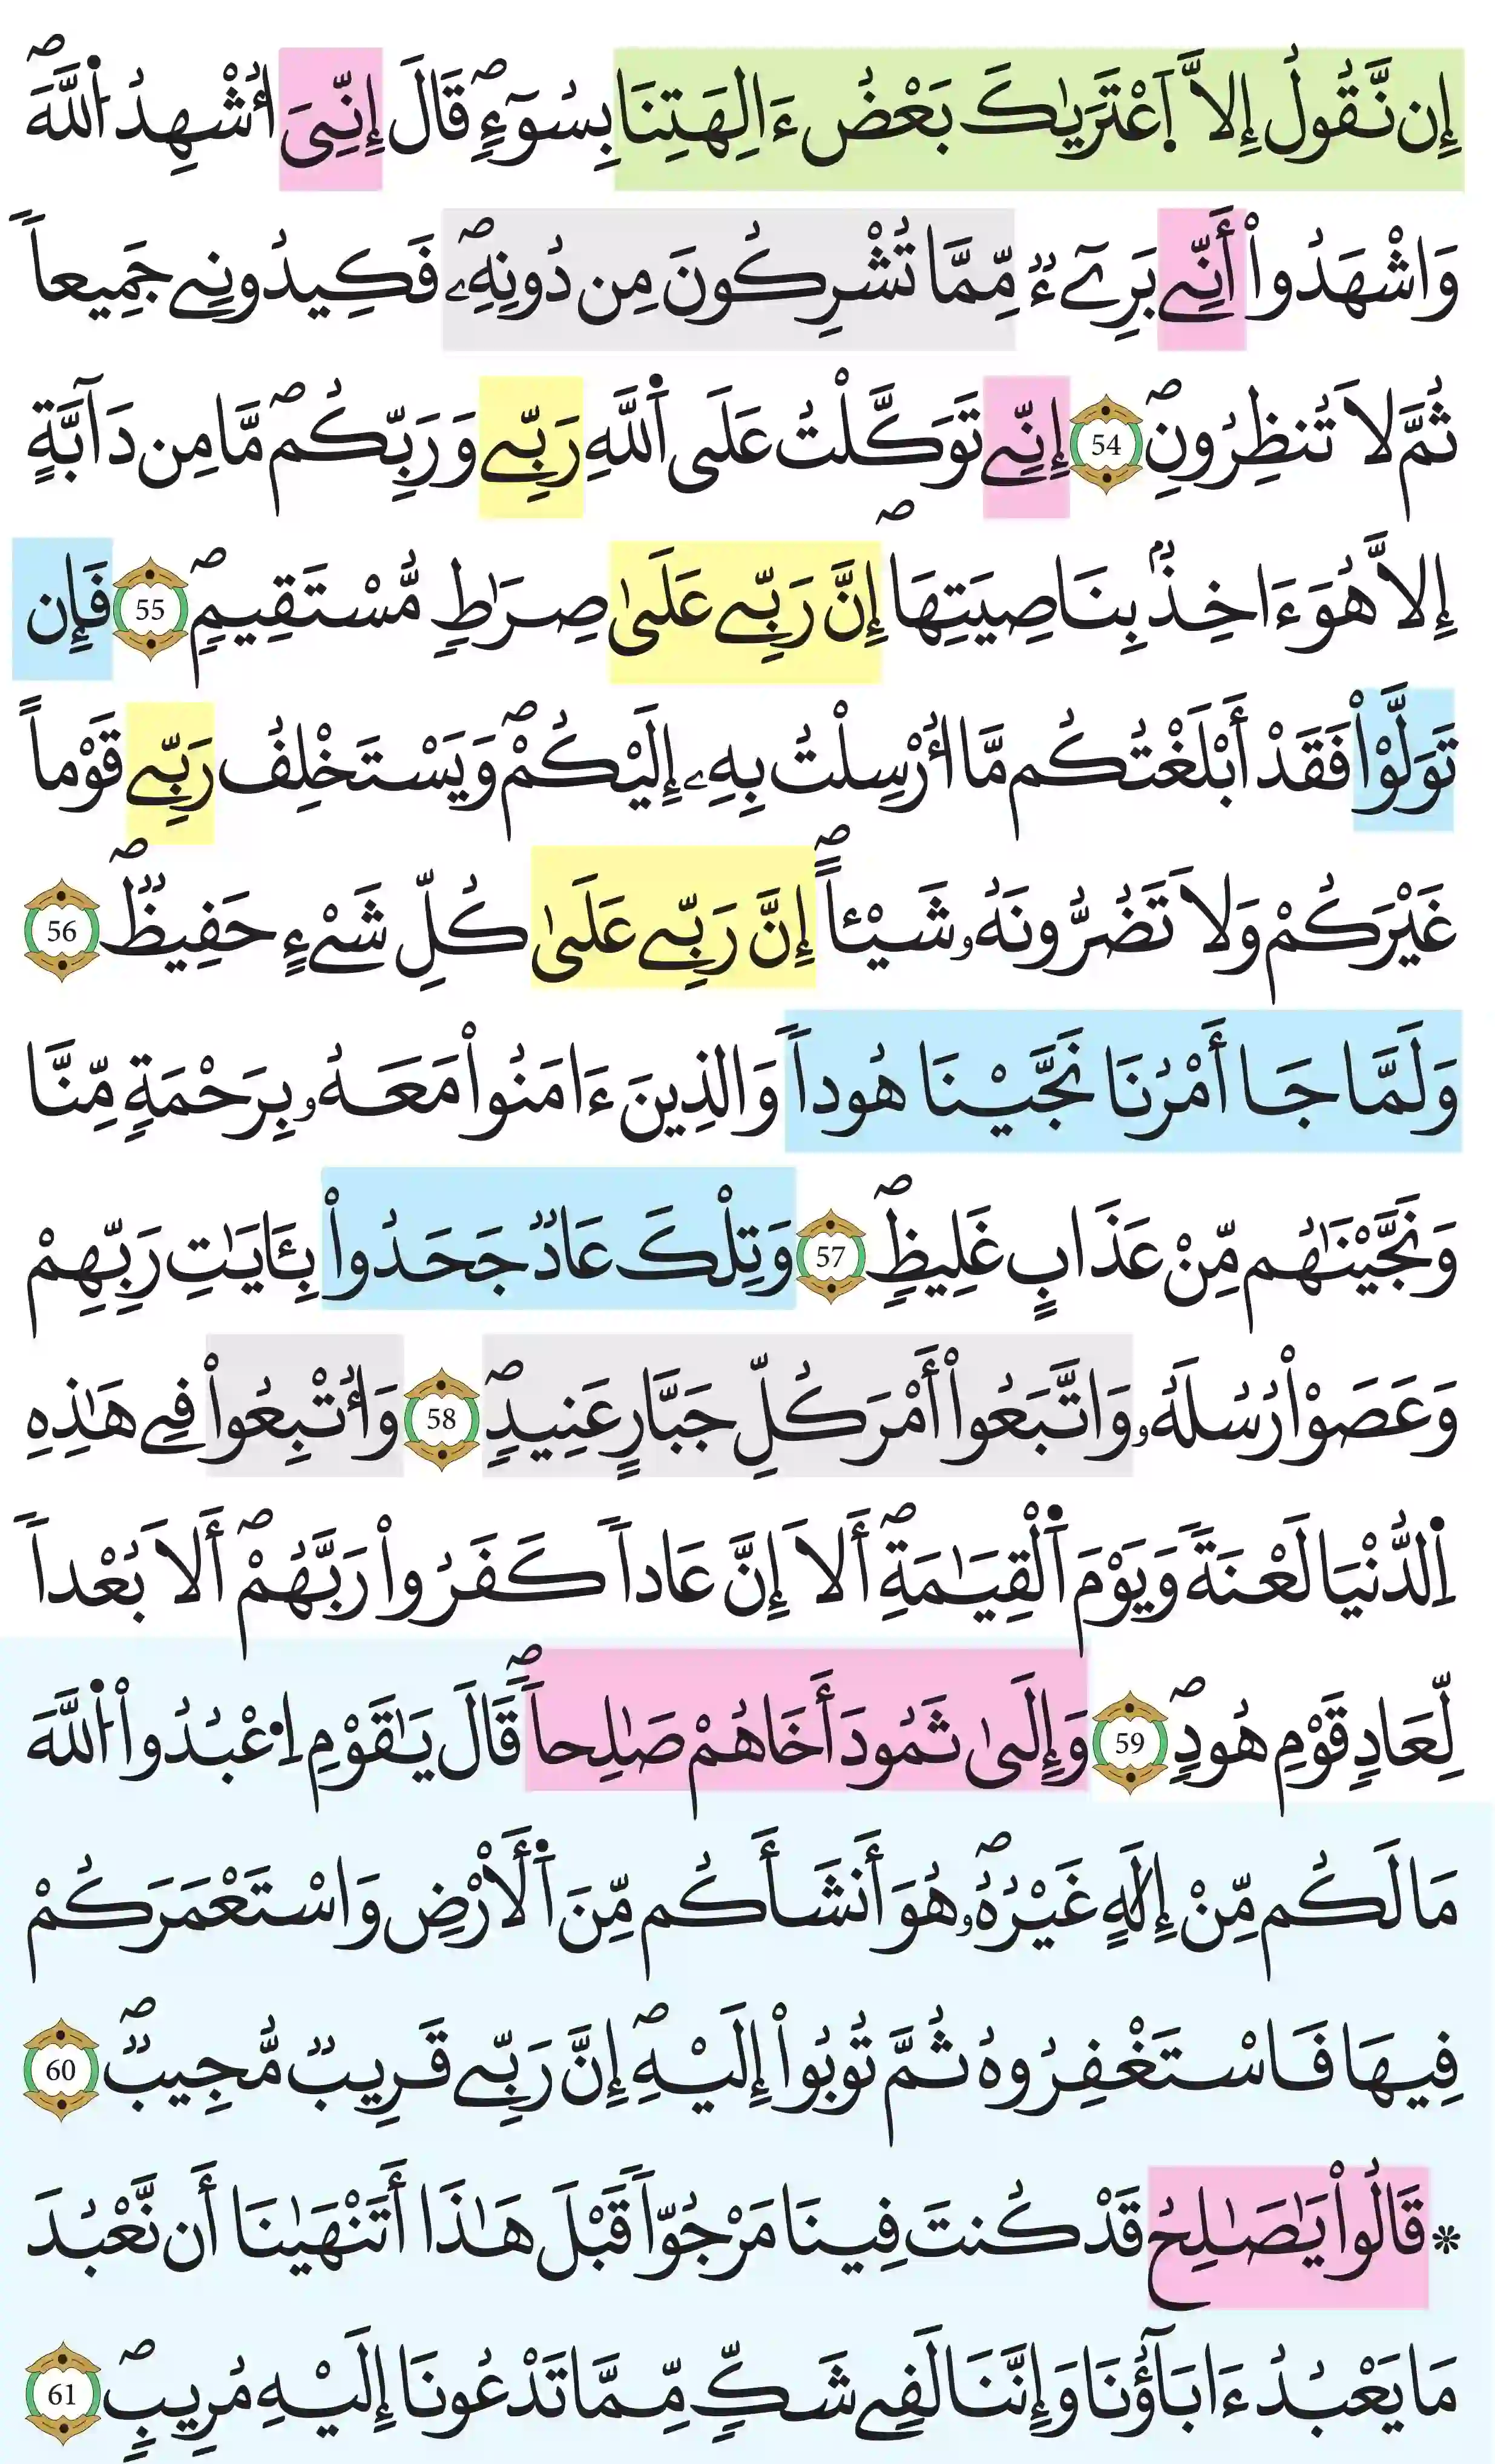 إِن نَّقُولُ إِلاَّ اَ۪عْتَر۪يٰكَ بَعْضُ ءَالِهَتِنَا بِسُوٓءٖۖ قَالَ إِنِّيَ أُشْهِدُ اُ۬للَّهَۖ
وَاشْهَدُوٓاْ أَنِّے بَرِےٓءٞ مِّمَّا تُشْرِكُونَ مِن دُونِهِۦۖ فَكِيدُونِے جَمِيعاٗ
ثُمَّ لَا تُنظِرُونِۖ 54 إِنِّے تَوَكَّلْتُ عَلَي اَ۬للَّهِ رَبِّے وَرَبِّكُمۖ مَّا مِن دَآبَّةٍ
إِلاَّ هُوَ ءَاخِذُۢ بِنَاصِيَتِهَاۖ إِنَّ رَبِّے عَلَيٰ صِرَٰطٖ مُّسْتَقِيمٖۖ 55 فَإِن
تَوَلَّوْاْ فَقَدْ أَبْلَغْتُكُم مَّا أُرْسِلْتُ بِهِۦ إِلَيْكُمْۖ وَيَسْتَخْلِفُ رَبِّے قَوْماً
غَيْرَكُمْ وَلَا تَضُرُّونَهُۥ شَيْـٔاًۖ إِنَّ رَبِّے عَلَيٰ كُلِّ شَےْءٍ حَفِيظٞۖ 56
وَلَمَّا جَا أَمْرُنَا نَجَّيْنَا هُوداٗ وَالذِينَ ءَامَنُواْ مَعَهُۥ بِرَحْمَةٖ مِّنَّا
وَنَجَّيْنَٰهُم مِّنْ عَذَابٍ غَلِيظٖۖ 57 وَتِلْكَ عَادٞ جَحَدُواْ بِـَٔايَٰتِ رَبِّهِمْ
وَعَصَوْاْ رُسُلَهُۥ وَاتَّبَعُواْ أَمْرَ كُلِّ جَبَّارٍ عَنِيدٖۖ 58 وَأُتْبِعُواْ فِے هَٰذِهِ
اِ۬لدُّنْيَا لَعْنَةٗ وَيَوْمَ اَ۬لْقِيَٰمَةِۖ أَلَا إِنَّ عَاداٗ كَفَرُواْ رَبَّهُمْۖ أَلَا بُعْداٗ
لِّعَادٖ قَوْمِ هُودٖۖ 59 وَإِلَيٰ ثَمُودَ أَخَاهُمْ صَٰلِحاٗۖ قَالَ يَٰقَوْمِ اِ۟عْبُدُواْ اُ۬للَّهَ
مَا لَكُم مِّنْ إِلَٰهٍ غَيْرُهُۥۖ هُوَ أَنشَأَكُم مِّنَ اَ۬لْأَرْضِ وَاسْتَعْمَرَكُمْ
فِيهَا فَاسْتَغْفِرُوهُ ثُمَّ تُوبُواْ إِلَيْهِۖ إِنَّ رَبِّے قَرِيبٞ مُّجِيبٞۖ 60
* قَالُواْ يَٰصَٰلِحُ قَدْ كُنتَ فِينَا مَرْجُوّاٗ قَبْلَ هَٰذَا أَتَنْهَيٰنَا أَن نَّعْبُدَ
مَا يَعْبُدُ ءَابَآؤُنَا وَإِنَّنَا لَفِے شَكّٖ مِّمَّا تَدْعُونَا إِلَيْهِ مُرِيبٖۖ 61